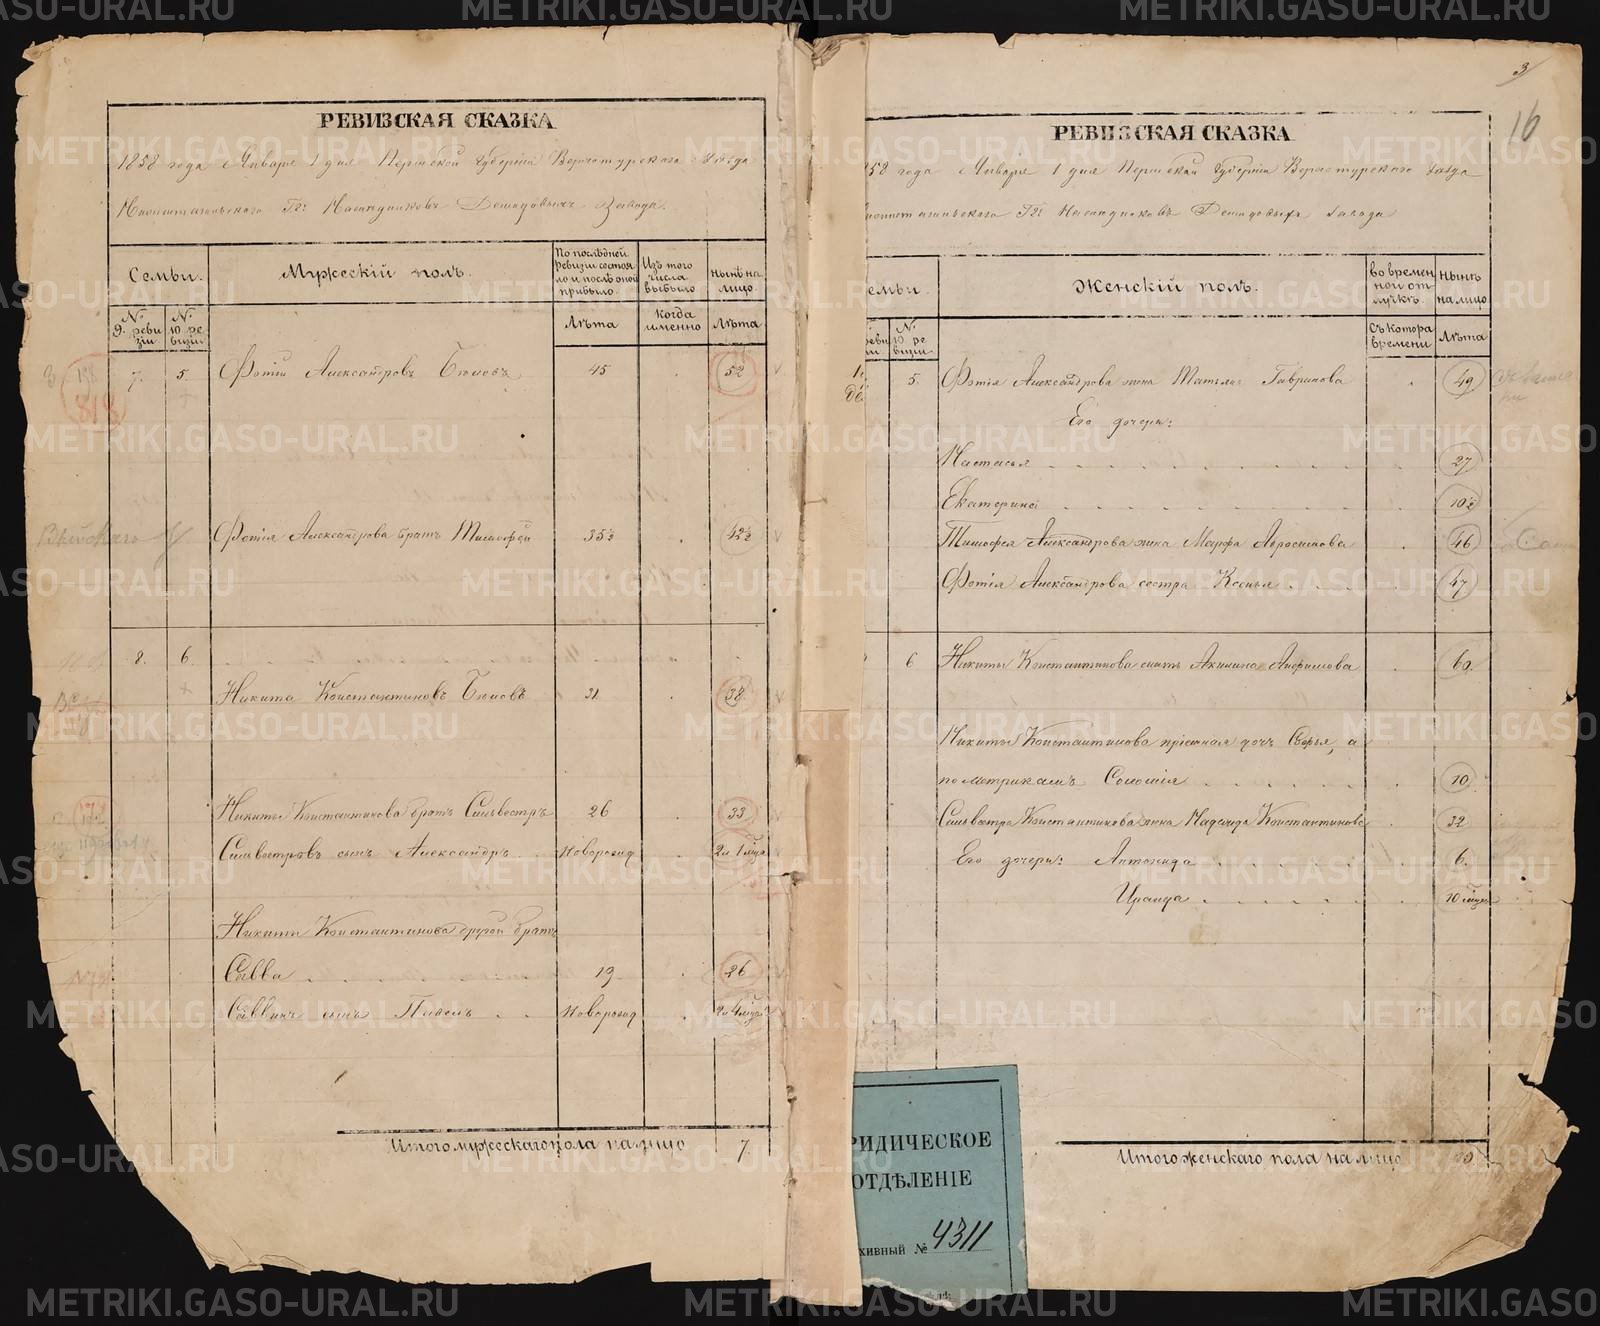 3
16
РЕВИЗСКАЯ СКАЗКА
1858 года Января 1 дня Пермской Губерніи Верхотурскаго Уѣзда
Нижнетагильскаго Гг: Наслѣдниковъ Демидовыхъ Завода.
Семьи.
Мужескій полъ.
По послѣдней ревизіи состояло и послѣ оной прибыло.
Изъ того числа выбыло
нынѣ на лицо.
№ 9. ревизіи
№ 10 ревизіи
Лѣта
Когда именно
Лѣта
7. 5. Фотій Александровъ 45 52
818
Фотія Александрова братъ Тимофей 35½ 42½
8. 6.
Никита Константиновъ 31 38
Никиты Константинова братъ Сильвестръ 26 33
Сильвестровъ сынъ Александръ новорожд
Никиты Константинова другой братъ
Савва 19 26
Саввинъ сынъ Павелъ новорожд
Итого мужескаго пола на лицо 7.
РЕВИЗСКАЯ СКАЗКА
858 года Января 1 дня Пермской Губерніи Верхотурскаго Уѣзда
Гг: Наслѣдниковъ Демидовыхъ Завода
емьи.
Женскій полъ.
во временной отлучкѣ.
нынѣ на лицо
№ 10 ревизіи
Съ котора времени
Лѣта
5. Фотія Александрова жена Татьяна Гаврилова 49
Его дочери:
Настасья 27
Екатерина 10½
Тимофея Александрова жена Марфа Абросимова 46
Фотія Александрова сестра Ксенья 47
6 Никиты Константинова мать Акилина Анфимова 60.
Никиты Константинова пріемная дочь а
по метрикамъ Соломія 10
Сильвестра Константинова жена Надежда Константинова 32
Его дочери: Антонида 6.
Ираида
Итого женскаго пола на лицо 10
РИДИЧЕСКОЕ
ОТДѢЛЕНІЕ
хивный № 4311
METRIKI.GASO-URAL.RU